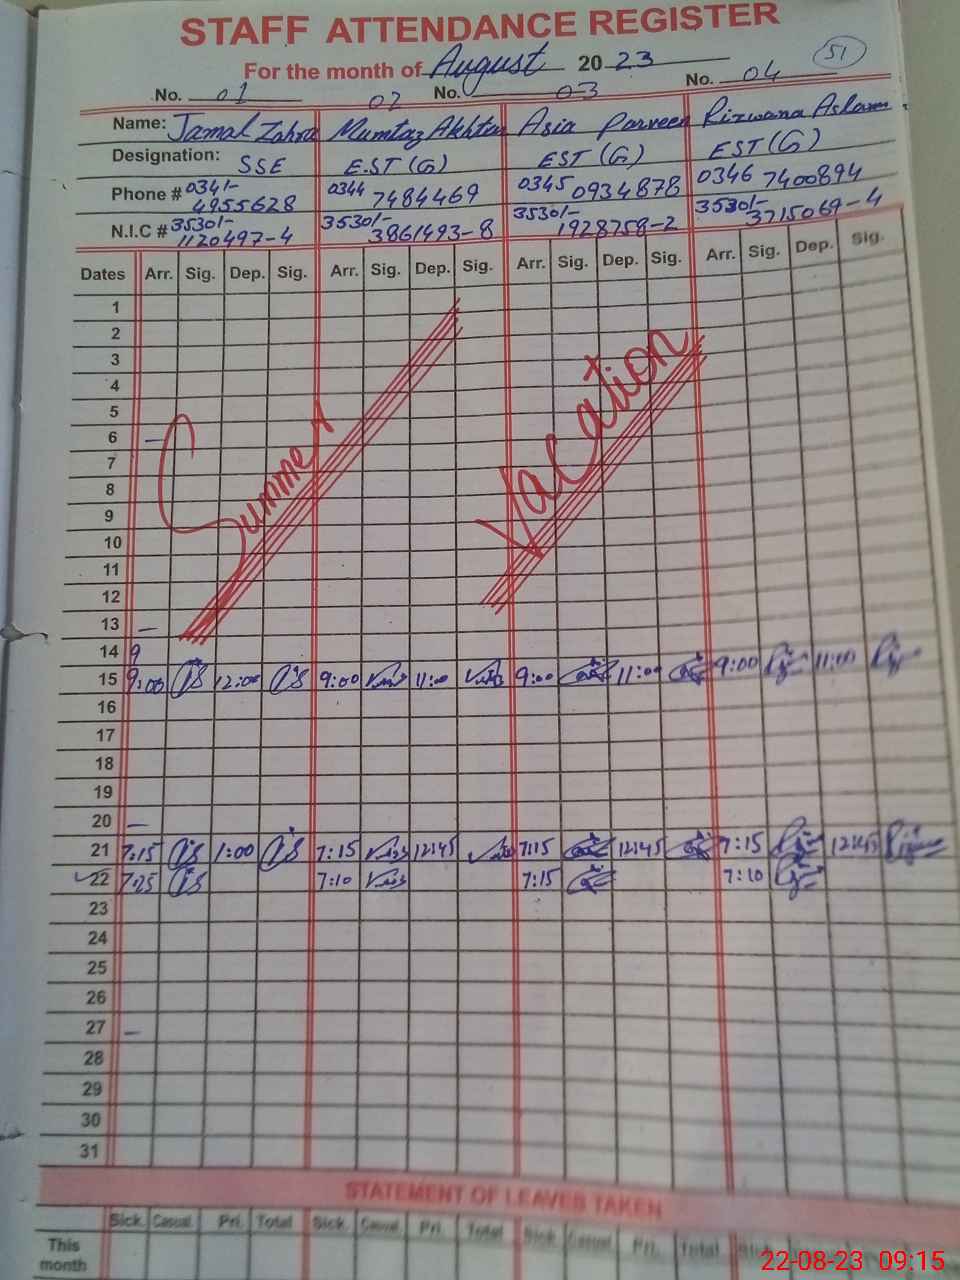 STAFF ATTENDANCE REGISTER
For the month of August 2023
51
No. 01 02 No. 03 No. 04
Name: Jamal Zahra Mumtaz Akhtar Asia Parveen Rizwana Aslam
Designation: SSE E.ST (G) EST (G) EST (G)
Phone # 0341- 4955628 0344 7484469 0345 0934878 0346 7400894
N.I.C # 35301- 1120497-4 35301- 3861493-8 35301- 1928758-2 35301- 3715069-4
Dates Arr. Sig. Dep. Sig. Arr. Sig. Dep. Sig. Arr. Sig. Dep. Sig. Arr. Sig. Dep. Sig.
1
2
3
4
5
6 –
7
8
9
10
11
12
13 –
Summer Vacation
14 9
15 9:00 12:00 9:00 11:00 9:00 11:00 9:00 11:00
16
17
18
19
20 –
21 7:15 1:00 7:15 12:45 7:15 12:45 7:15 12:45
22 7:25 7:10 7:15 7:10
23
24
25
26
27 –
28
29
30
31
STATEMENT OF LEAVES TAKEN
Sick Casual Pri. Total Sick Casual Pri. Total Sick Casual Pri. Total Sick
This month
22-08-23 09:15